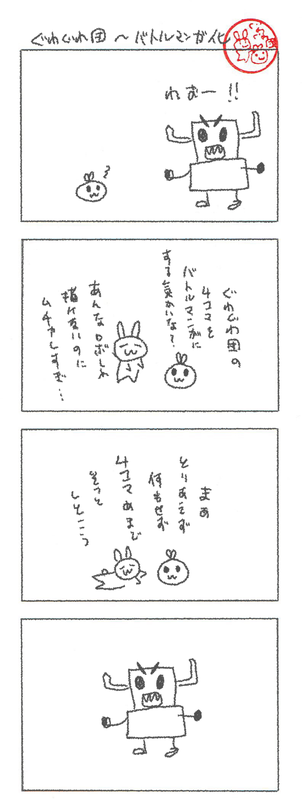 ぐわぐわ団 〜バトルマンガ化
れおー!!
ぐわぐわ団の
4コマを
バトルマンガに
する気かいな?
あんなロボしか
描けないのに
ムチャしすぎ…
まぁ
とりあえず
何もせず
4コマめまで
そっと
しとこう